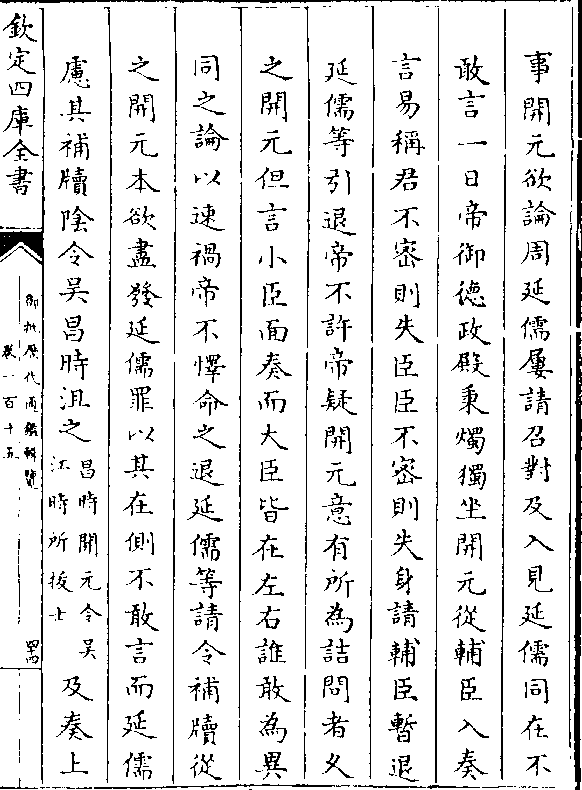 事開元欲論周延儒屢請召對及入見延儒同在不
敢言一日帝御德政殿秉燭獨坐開元從輔臣入奏
言易稱君不密則失臣臣不密則失身請輔臣暫退
延儒等引退帝不許帝疑開元意有所為詰問者乆
之開元但言小臣面奏而大臣皆在左右誰敢為異
同之論以速禍帝不懌命之退延儒等請令補牘從
之開元本欲盡發延儒罪以其在側不敢言而延儒
慮其補牘陰令吳昌時沮之昌時開元令吳江時所拔士及奏上
欽定四庫全書
御批歷代通鑑輯覽
卷一百十五